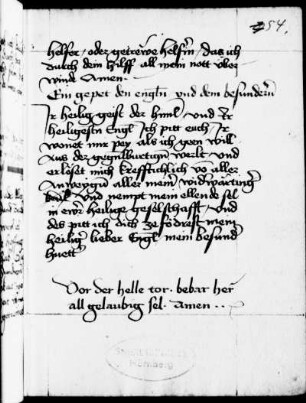 254.
helfer / oder getrewe helferin / das ich
durch dein hilff all mein nott uber
winde Amen.
Ein gepet den engln und dem besundern
Ir heilig geist der himl / und Ir
heiligisten Engl Ich pitt euch / Ir
wonet mir pey als ich geen will
aus der gegenburtign werlt / und
erloset mich krefftiklich von aller
anweygung aller meiner widerwärtigen
und nempt mein ellende sel
in ewr heilige geselschafft / und
des pitt ich dich zefodrest mein
heiliger lieber Engl mein besunder
huetter
Vor der helle tor. bebar her
all gelaubig sel. Amen . .
Nürnberg